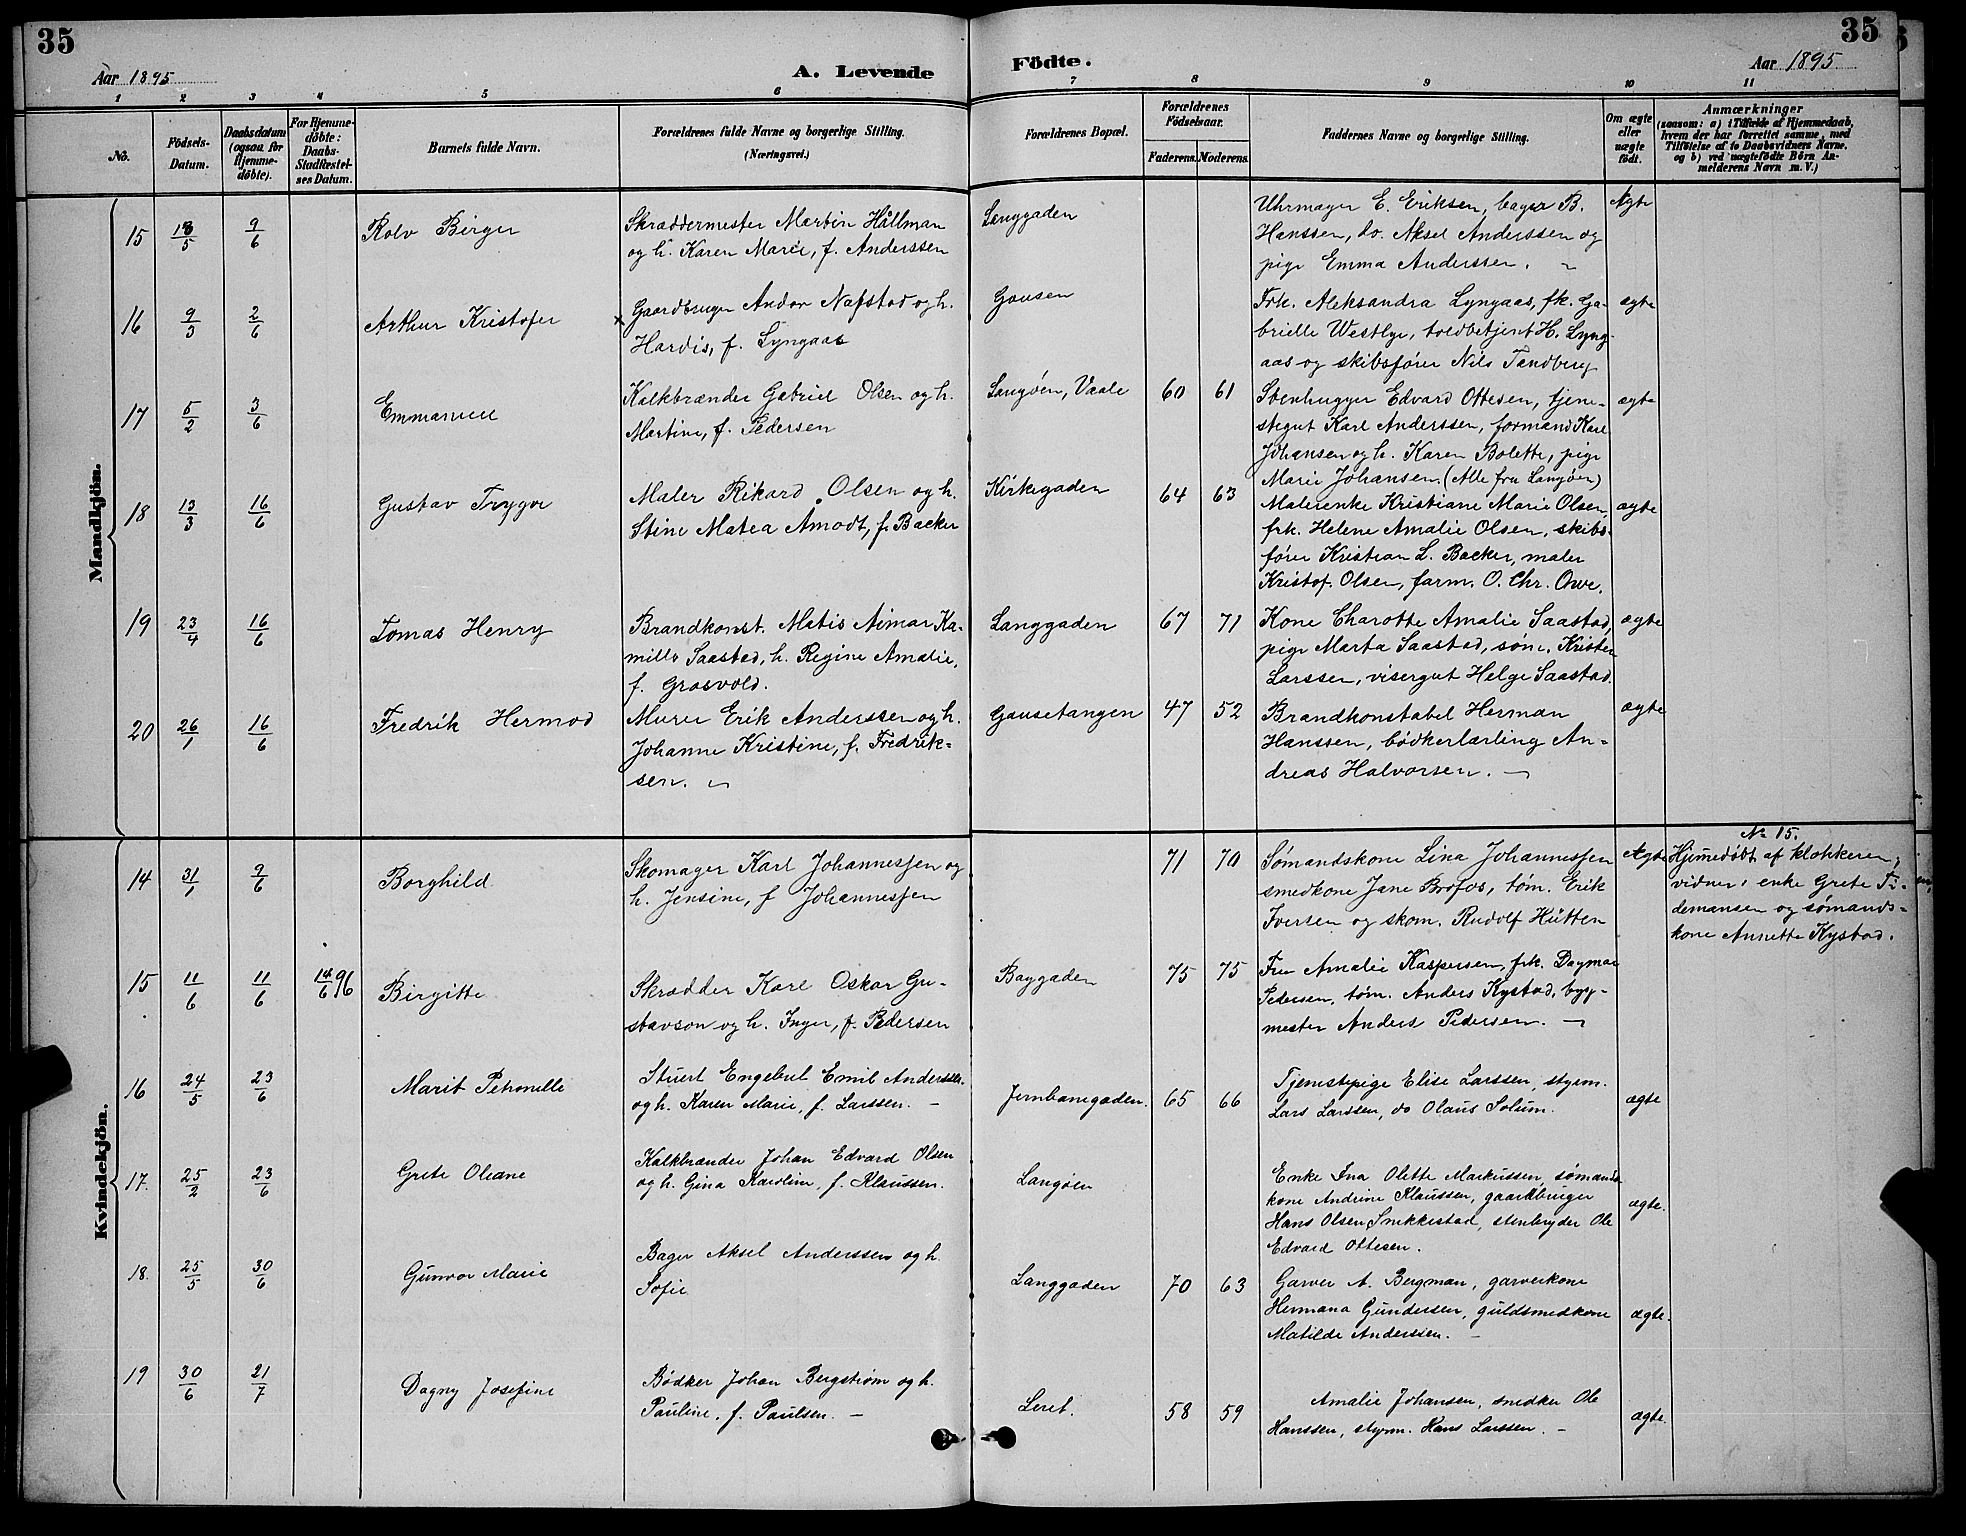 35
Aar 1895
A. Levende
1 2 3 4 5 6
No.
Fødsels-
Datum.
Daabsdatum
(ogsaa for
Hjemme-
døbte).
For Hjemme-
døbte:
Daabs-
Stadfæstel-
ses Datum.
Barnets fulde Navn.
Forældrenes fulde Navne og borgerlige Stilling.
(Næringsvei.)
Mandkjön.
15 18/5 9/6 Rolv Birger
Skræddermester Martin Hållman
og h. Karen Marie, f. Anderssen
16 9/3 2/6 Arthur Kristofer
× Gaardbruger Andor Nafstad og h.
Hardis, f. Lyngaas
17 5/2 3/6 Emmanuel
Kalkbrænder Gabriel Olsen og h.
Martine, f. Pedersen
18 13/3 16/6 Gustav Trygve
Maler Rikard Olsen og h.
Stine Matea Amodt, f. Backer
19 23/4 16/6 Tomas Henry
Brandkonst. Matis Aimar Ka-
millo Saastad, h. Regine Amalie,
f. Grosvold.
20 26/1 16/6 Fredrik Hermod
Murer Erik Anderssen og h.
Johanne Kristine, f. Fredrik-
sen.
Kvindekjön.
14 31/1 9/6 Borghild
Skomager Karl Johannessen og
h. Jensine, f Johannessen
15 11/6 11/6 14/6 96 Birgitte
Skrædder Karl Oskar Gu-
stavson og h. Inger, f. Pedersen
16 24/5 23/6 Marit Petronelle
Stuert Engebret Emil Anderssen
og h. Karen Marie, f. Larssen. —
17. 25/2 23/6 Grete Oleane
Kalkbrænder Johan Edvard Olsen
og h. Gina Karoline, f. Klaussen.
18. 25/5 30/6 Gunvor Marie
Bager Aksel Anderssen og h.
Sofie
19 30/6 21/7 Dagny Josefine
Bødker Johan Bergstrøm og h.
Pauline, f. Paulsen. —
Födte.
35
Aar 1895
7 8 9 10 11
Forældrenes Bopæl.
Forældrenes
Fødselsaar.
Faderens. Moderens.
Faddernes Navne og borgerlige Stilling.
Om ægte
eller
uægte
født.
Anmærkninger
(saasom: a) i Tilfælde af Hjemmedaab,
hvem der har forrettet samme, med
Tilføielse af to Daabsvidners Navne.
og b) ved uægtefødte Børn An-
melderens Navn m. V.)
Langgaden
Uhrmager E. Eriksen, bager B.
Hanssen, do. Aksel Anderssen og
pige Emma Anderssen.
Ægte
Gausen
Frk. Aleksandra Lyngaas, fk. Ga-
brielle Westlye, toldbetjent H. Lyng-
aas og skibsfører Nils Tandberg
ægte
Langøen, Vaale 60 61
Stenhugger Edvard Ottesen, tjene-
stegut Karl Anderssen, formand Karl
Johansen og h. Karen Bolette, pige
Marie Johansen. (Alle fra Langøen)
ægte
Kirkegaden 64 63
Malerenke Kristiane Marie Olsen,
frk. Helene Amalie Olsen, skibs-
fører Kristian L. Backer, maler
Kristof. Olsen, farm. O. Chr. Owe.
ægte
Langgaden 67 71
Kone Charotte Amalie Saastad,
pige Marta Saastad, søm. Kristen
Larssen, visergut Helge Saastad.
ægte
Gausetangen 47 52
Brandkonstabel Herman
Hanssen, bødkerlærling An-
dreas Halvorsen. —
ægte
71 70
Sømandskone Lina Johannessen
smedkone Jane Brofos, tøm. Erik
Iversen og skom. Rudolf Hütten
Ægte
No 15.
Hjemedøbt af klokkeren,
vidner: enke Grete Ti-
demansen og sømands-
kone Annette Kystad.
Baggaden 75 75
Fru Amalie Kaspersen, frk. Dagmar
Pedersen, tøm. Anders Kystad, byg-
mester Anders Pedersen. —
Jernbanegaden. 65 66
Tjenestepige Elise Larssen, styrm.
Lars Larssen, do Olaus Solum.
ægte
Langøen
Enke Ina Olette Markussen, sømands-
kone Andrine Klaussen, gaardbruger
Hans Olsen Snekkestad, stenbryder Ole
Edvard Ottesen.
ægte.
Langgaden 70 63
Garver A. Bergman, garverkone
Hermana Gundersen, guldsmedkone
Matilde Anderssen. —
ægte.
Leret. 58 59
Amalie Johansen, snedker Ole
Hanssen, styrm. Hans Larssen. —
ægte.